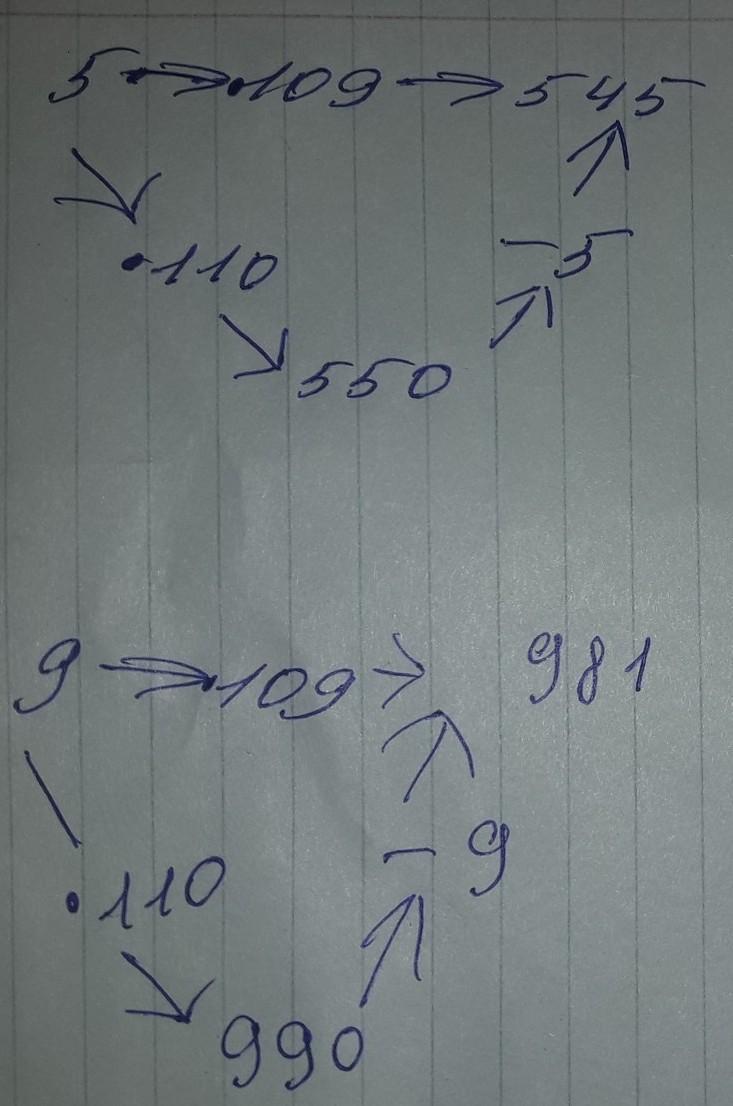 5 → ·109 → 545
·110 -5
550
9 → ·109 → 981
·110 - 9
990